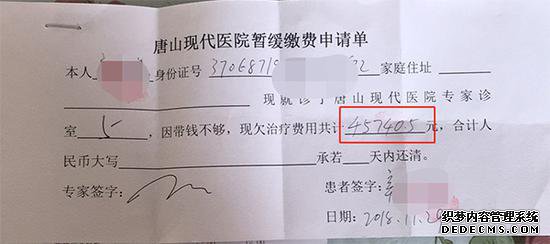 唐山现代医院暂缓缴费申请单
本人 身份证号 3706871 2 家庭住址
现就诊于唐山现代医院专家诊
室 5 ,因带钱不够,现欠治疗费用共计 457405 元,合计人
民币大写 承若 天内还清。
专家签字: 患者签字:
日期: 2018.11.2
织梦内容管理系统
DEDECMS.COM